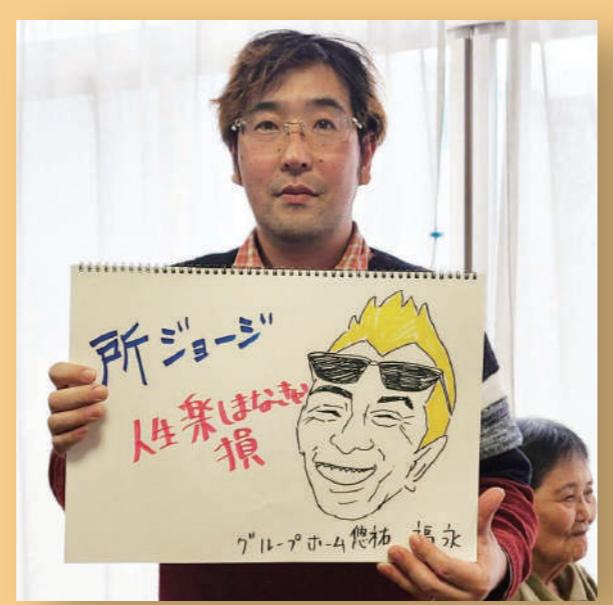 所ジョージ
人生楽しまなきゃ
損
グループホーム悠祐 福永